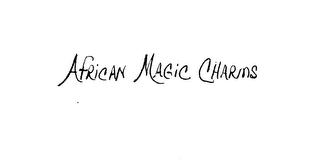 African Magic Charms